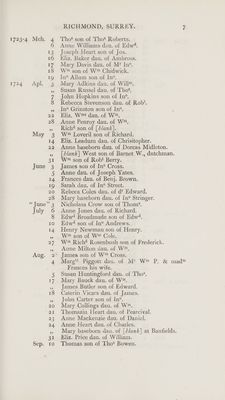 RICHMOND, SURREY. 7
1723-4 Mch. 4 Thoˢ son of Thoˢ Roberts.
6 Anne Williams dau. of Edwᵈ.
13 Joseph Heart son of Jos.
16 Eliz. Baker dau. of Ambross.
17 Mary Davis dau. of Mʳ Inº.
18 Wᵐ son of Wᵐ Chidwick.
19 Inº Allum son of Inº.
1724 Apl. 3 Mary Adkins dau. of Willᵐ.
„ Susan Russel dau. of Thoˢ.
7 John Hopkins son of Inº.
8 Rebecca Stevenson dau. of Robᵗ.
„ Inº Grimston son of Inº.
22 Eliz. Wᵐˢ dau. of Wᵐ.
28 Anne Penroy dau. of Wᵐ.
„ Richᵈ son of [blank].
May 3 Wᵐ Loveril son of Richard.
14 Eliz. Leadum dau. of Christopher.
22 Anne baseborn dau. of Dorcas Midleton.
„ [blank] West son of Barnet W., dutchman.
31 Wᵐ son of Robᵗ Berry.
June 3 James son of Inº Cross.
5 Anne dau. of Joseph Yates.
14 Frances dau. of Benj. Brown.
19 Sarah dau. of Inº Street.
20 Rebeca Coles dau. of dº Edward.
28 Mary baseborn dau. of Inº Stringer.
"June" 3 Nicholass Crow son of Thomˢ.
July 6 Anne Jones dau. of Richard.
8 Edwᵈ Broadmeate son of Edwᵈ.
10 Edwᵈ son of Inº Andrews.
14 Henry Newman son of Henry.
„ Wᵐ son of Wᵐ Cole.
27 Wᵐ Richᵈ Rosenbush son of Frederick.
„ Anne Milton dau. of Wᵐ.
Aug. 2 James son of Wᵐ Cross.
4 Margᵗᵗ Piggott dau. of Mʳ Wᵐ P. & madᵐ
Frances his wife.
5 Susan Huntingford dau. of Thoˢ.
17 Mary Bauck dau. of Wᵐ.
„ James Butler son of Edward.
18 Caterin Vicars dau. of James.
„ John Carter son of Inº.
20 Mary Collings dau. of Wᵐ.
21 Thomazin Heart dau. of Pearcival.
23 Anne Mackenzie dau. of Daniel.
24 Anne Heart dau. of Charles.
„ Mary baseborn dau. of [blank] at Banfields.
31 Eliz. Price dau. of William.
Sep. 10 Thomas son of Thoˢ Bowen.